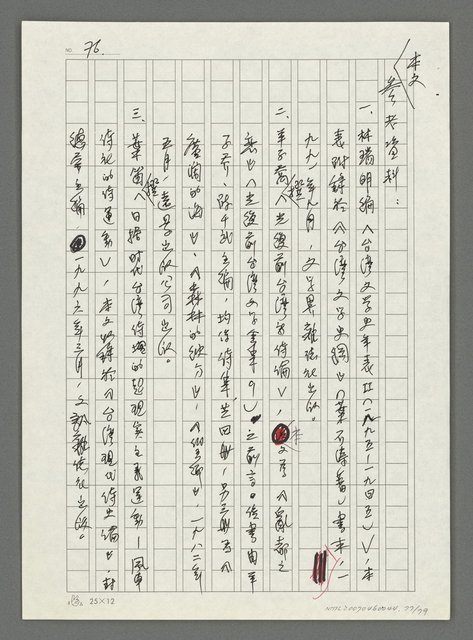 NO. 76.
本文
參考資料：
一、林瑞明編《台灣文學史年表Ⅱ（一八九五—一九四五）》，本
表附錄於《台灣文學史綱》（葉石濤著）書末，一
九九一年九月，文學界雜誌社出版。
二、羊子喬《光復前台灣新詩論》，本文為《亂都之
戀》《光復前台灣文學全集9》之前言。該書由羊
子喬、陳千武主編，均係詩集，共四冊，另三冊為《
廣闊的海》、《森林的彼方》、《望鄉》，一九八二年
五月，遠景出版公司出版。
三、葉笛《日據時代台灣詩壇的超現實主義運動—風車
詩社的詩運動》，本文收錄於《台灣現代詩史論》，封
德屏主編，一九九六年三月，文訊雜誌社出版。
撰
撰
25×12